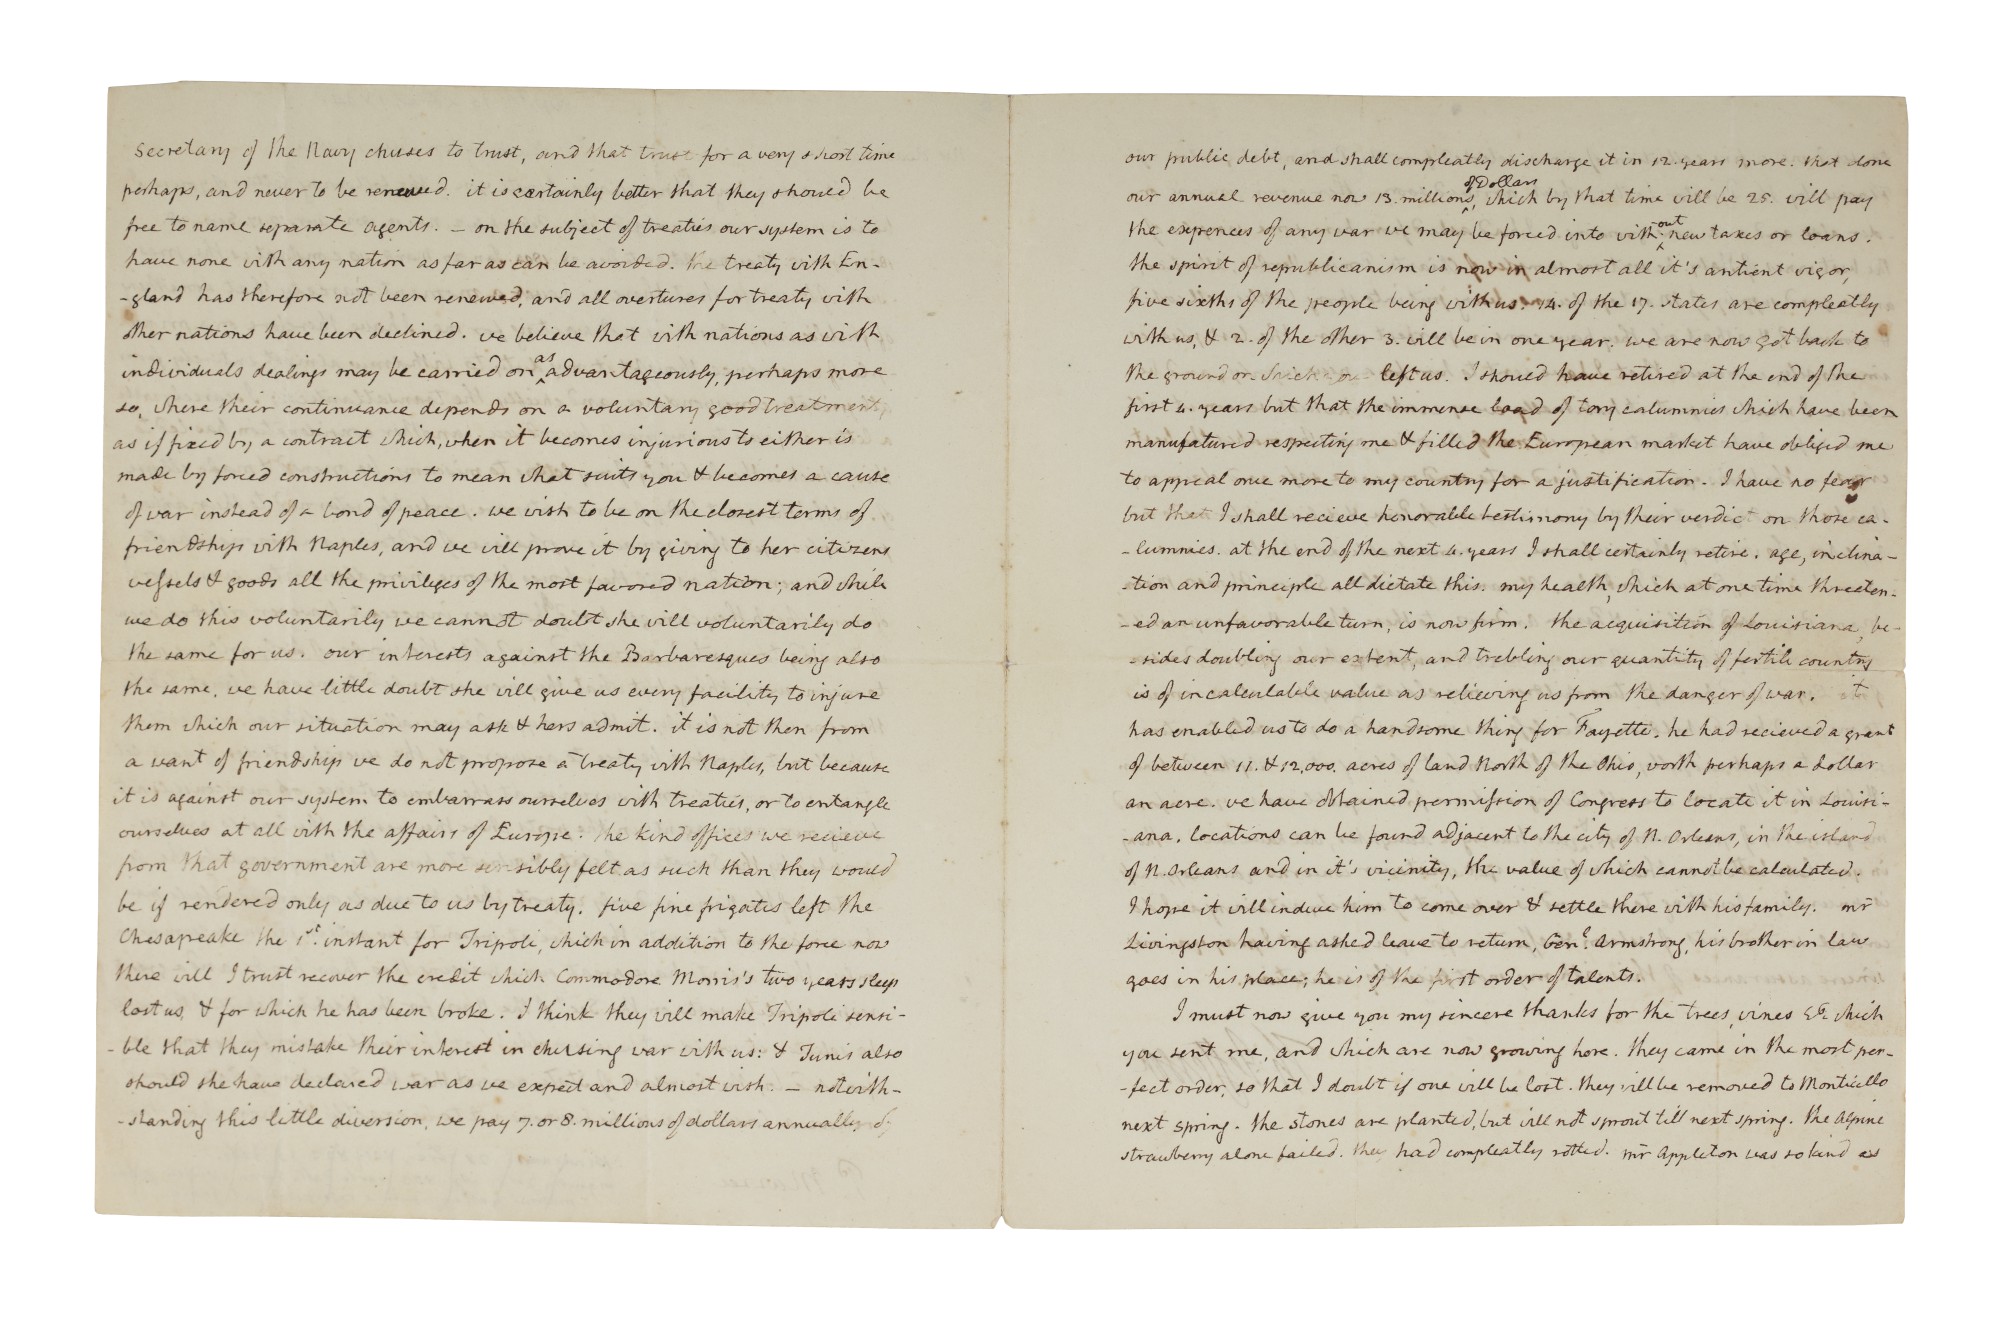 secretary of the Navy chuses to trust, and that trust for a very short time
perhaps, and never to be renewed. it is certainly better that they should be
free to name separate agents. — on the subject of treaties our system is to
have none with any nation as far as can be avoided. the treaty with En-
-gland has therefore not been renewed, and all overtures for treaty with
other nations have been declined. we believe that with nations as with
individuals dealings may be carried on as advantageously, perhaps more
so, where their continuance depends on a voluntary good treatment,
as if fixed by a contract which, when it becomes injurious to either is
made by forced constructions to mean what suits you & becomes a cause
of war instead of a bond of peace. we wish to be on the closest terms of
friendship with Naples, and we will prove it by giving to her citizens
vessels & goods all the privileges of the most favored nation; and while
we do this voluntarily we cannot doubt she will voluntarily do
the same for us. our interests against the Barbaresques being also
the same, we have little doubt she will give us every facility to injure
them which our situation may ask & hers admit. it is not then from
a want of friendship we do not propose a treaty with Naples, but because
it is against our system to embarrass ourselves with treaties, or to entangle
ourselves at all with the affairs of Europe. the kind offices we recieve
from that government are more sensibly felt as such than they would
be if rendered only as due to us by treaty. five fine frigates left the
Chesapeake the 1st. instant for Tripoli, which in addition to the force now
there will I trust recover the credit which Commodore Morris's two years sleep
lost us, & for which he has been broke. I think they will make Tripoli sensi-
-ble that they mistake their interest in chusing war with us: & Tunis also
should she have declared war as we expect and almost wish. — notwith-
-standing this little diversion, we pay 7. or 8. millions of dollars annually of
our public debt, and shall compleatly discharge it in 12. years more. that done
our annual revenue now 13. millions of Dollars, which by that time will be 25. will pay
the expences of any war we may be forced into without new taxes or loans.
the spirit of republicanism is now in almost all it's antient vigor,
five sixths of the people being with us. 14. of the 17. states are compleatly
with us, & 2. of the other 3. will be in one year. we are now got back to
the ground on which you left us. I should have retired at the end of the
first 4. years but that the immense load of tory calumnies which have been
manufatured respecting me & filled the European market have obliged me
to appeal once more to my country for a justification. I have no fear
but that I shall recieve honorable testimony by their verdict on those ca-
-lumnies. at the end of the next 4. years I shall certainly retire. age, inclina-
-tion and principle all dictate this. my health, which at one time threaten-
-ed an unfavorable turn, is now firm. the acquisition of Louisiana, be-
-sides doubling our extent, and trebling our quantity of fertile country
is of incalculable value as relieving us from the danger of war. it
has enabled us to do a handsome thing for Fayette. he had recieved a grant
of between 11. & 12,000. acres of land North of the Ohio, worth perhaps a dollar
an acre. we have obtained permission of Congress to locate it in Louisi-
-ana. locations can be found adjacent to the city of N. Orleans, in the island
of N. Orleans and in it's vicinity, the value of which cannot be calculated.
I hope it will induce him to come over & settle there with his family. mr
Livingston having asked leave to return, Genl. Armstrong, his brother in law
goes in his place; he is of the first order of talents.
I must now give you my sincere thanks for the trees, vines &c. which
you sent me, and which are now growing here. they came in the most per-
-fect order, so that I doubt if one will be lost. they will be removed to Monticello
next spring. the stones are planted, but will not sprout till next spring. the Alpine
strawberry alone failed. they had compleatly rotted. mr Appleton was so kind as